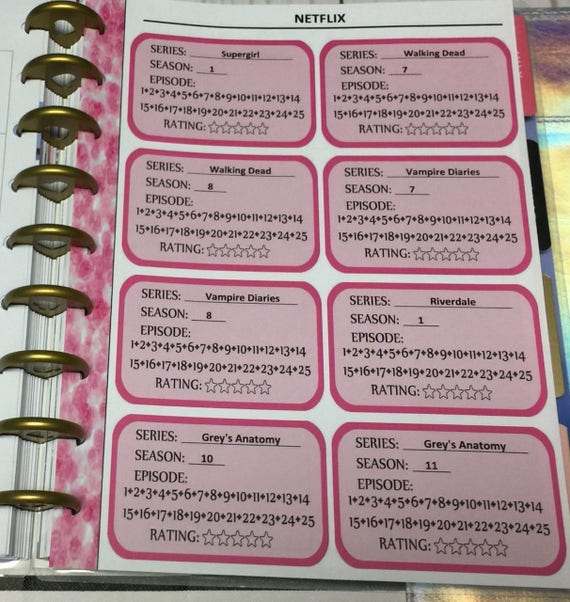 NETFLIX
SERIES: Supergirl
SEASON: 1
EPISODE:
1*2*3*4*5*6*7*8*9*10*11*12*13*14
15*16*17*18*19*20*21*22*23*24*25
RATING: ☆☆☆☆☆
SERIES: Walking Dead
SEASON: 7
EPISODE:
1*2*3*4*5*6*7*8*9*10*11*12*13*14
15*16*17*18*19*20*21*22*23*24*25
RATING: ☆☆☆☆☆
SERIES: Walking Dead
SEASON: 8
EPISODE:
1*2*3*4*5*6*7*8*9*10*11*12*13*14
15*16*17*18*19*20*21*22*23*24*25
RATING: ☆☆☆☆☆
SERIES: Vampire Diaries
SEASON: 7
EPISODE:
1*2*3*4*5*6*7*8*9*10*11*12*13*14
15*16*17*18*19*20*21*22*23*24*25
RATING: ☆☆☆☆☆
SERIES: Vampire Diaries
SEASON: 8
EPISODE:
1*2*3*4*5*6*7*8*9*10*11*12*13*14
15*16*17*18*19*20*21*22*23*24*25
RATING: ☆☆☆☆☆
SERIES: Riverdale
SEASON: 1
EPISODE:
1*2*3*4*5*6*7*8*9*10*11*12*13*14
15*16*17*18*19*20*21*22*23*24*25
RATING: ☆☆☆☆☆
SERIES: Grey's Anatomy
SEASON: 10
EPISODE:
1*2*3*4*5*6*7*8*9*10*11*12*13*14
15*16*17*18*19*20*21*22*23*24*25
RATING: ☆☆☆☆☆
SERIES: Grey's Anatomy
SEASON: 11
EPISODE:
1*2*3*4*5*6*7*8*9*10*11*12*13*14
15*16*17*18*19*20*21*22*23*24*25
RATING: ☆☆☆☆☆